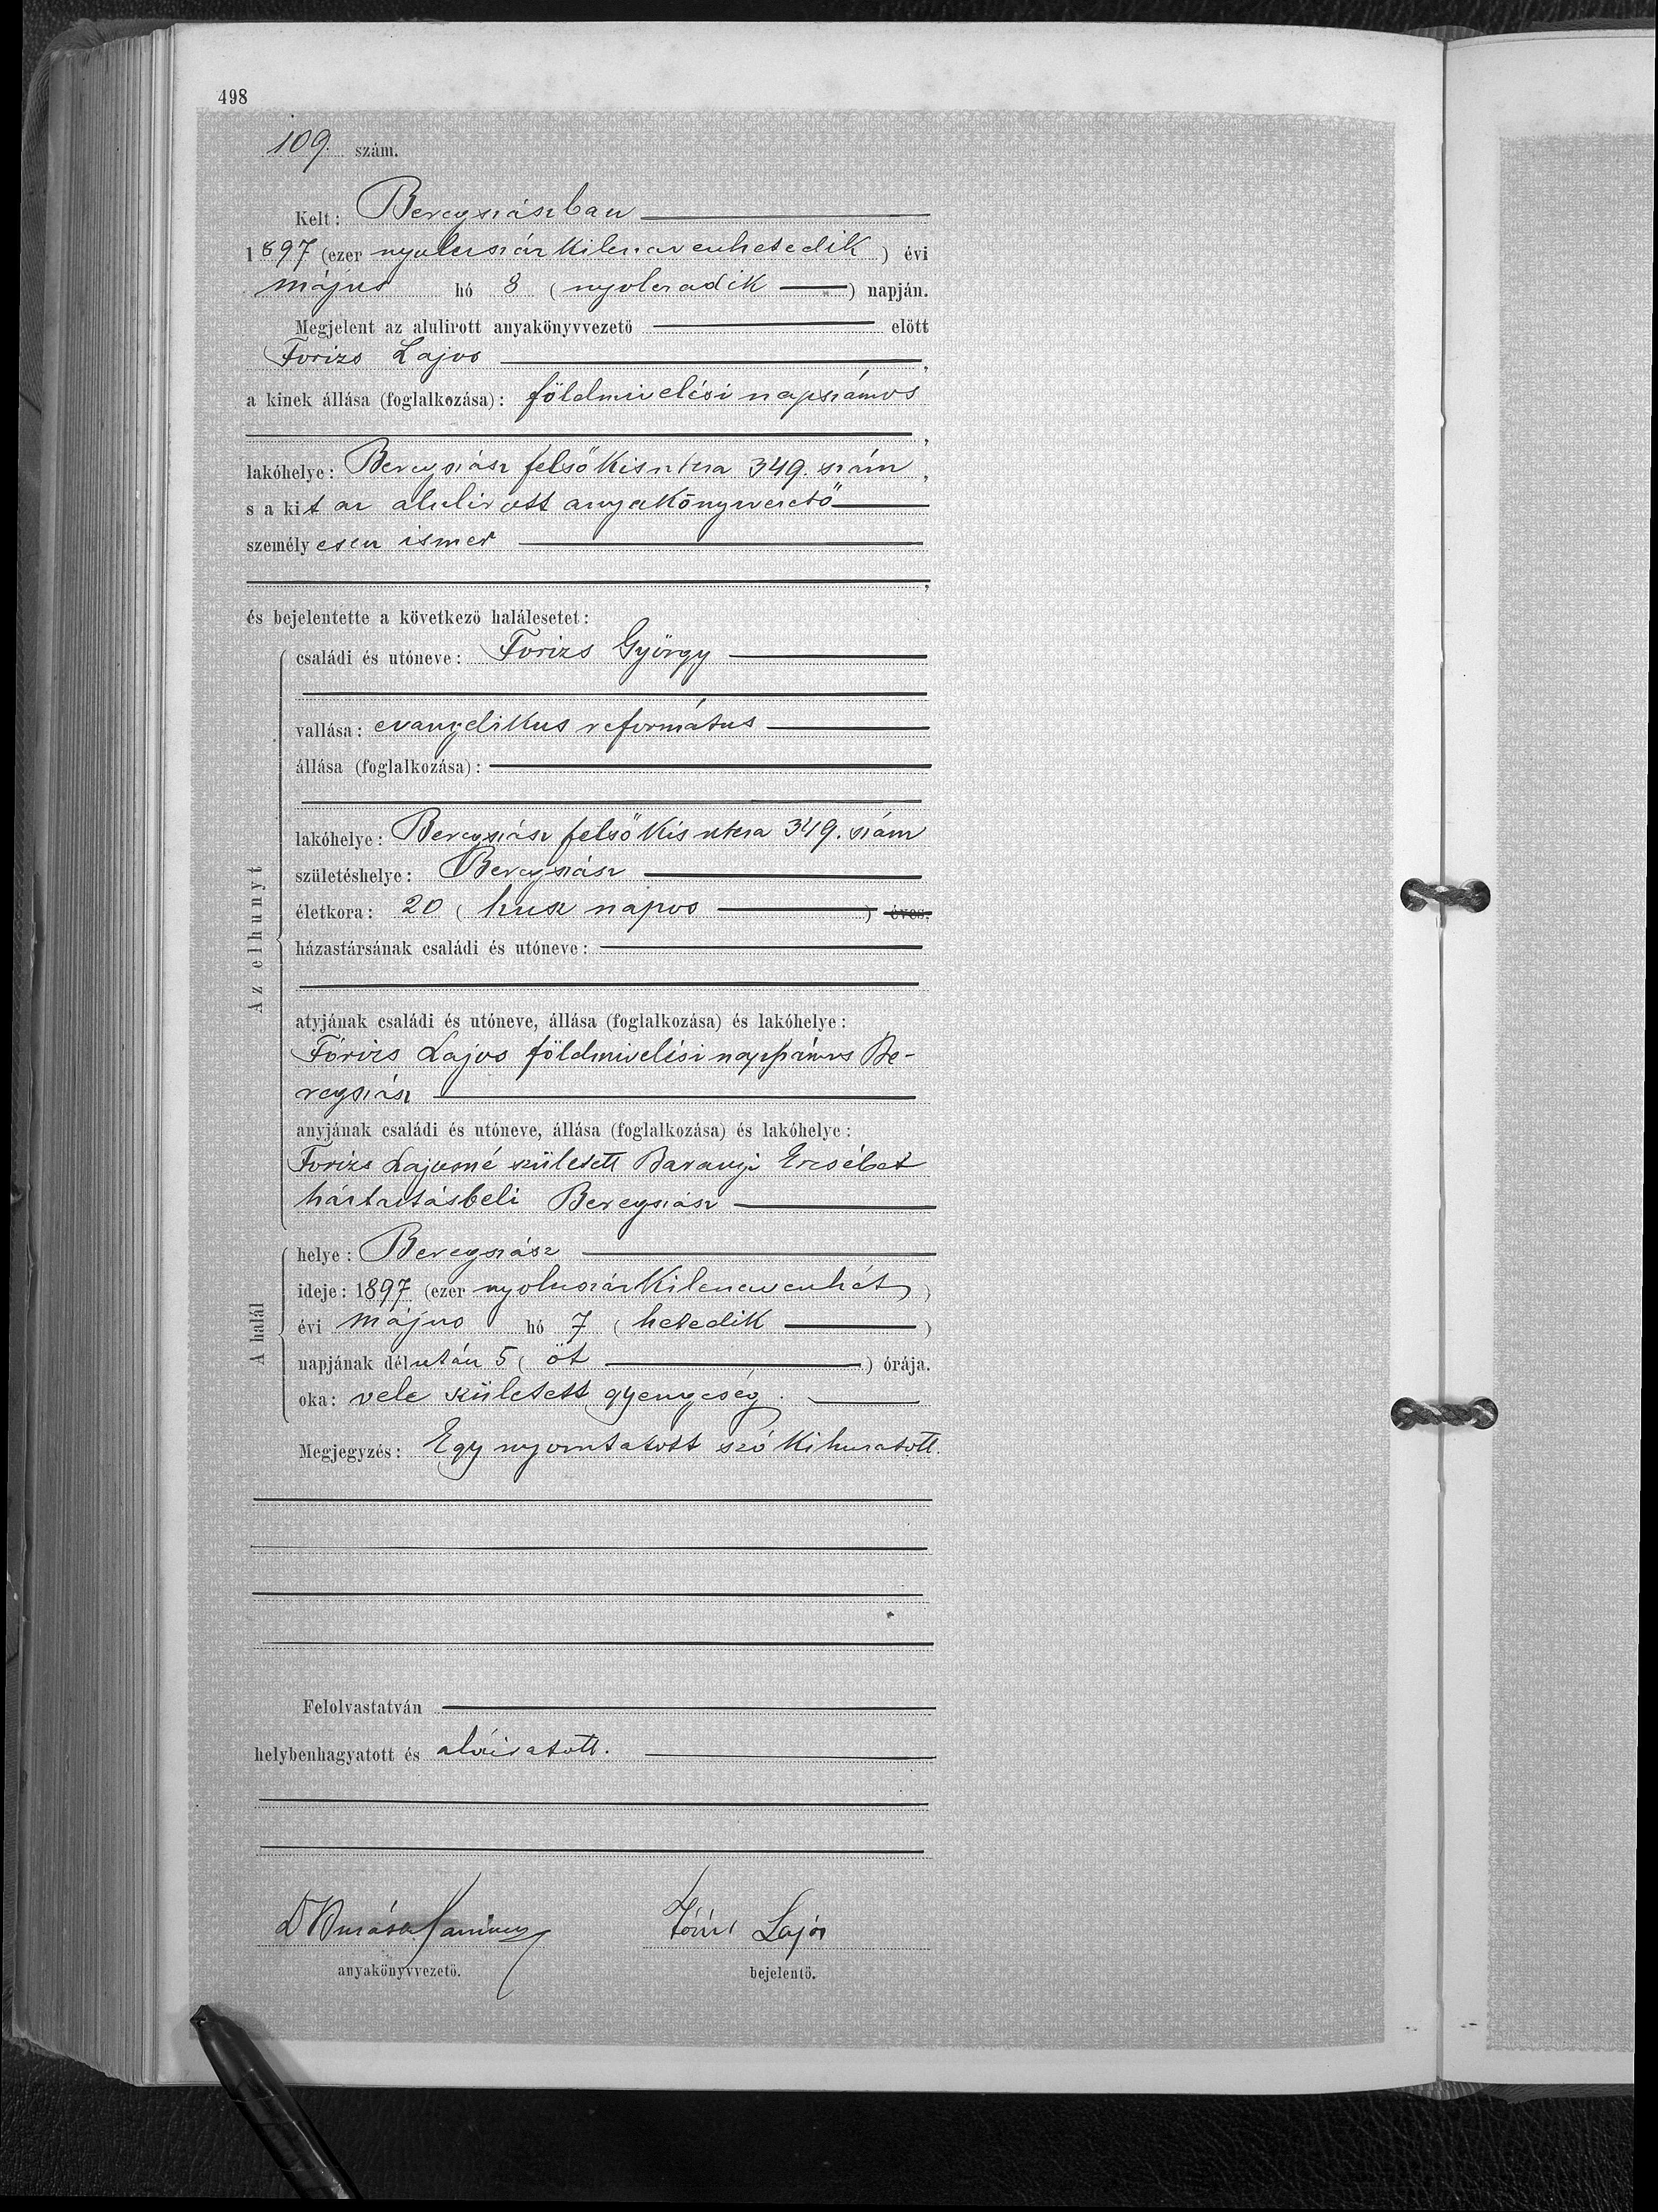 498
109. szám.
Kelt: Beregszászban
1897 (ezer nyolcszázkilencvenhetedik) évi
május hó 8 (nyolcadik) napján.
Megjelent az alulirott anyakönyvvezető előtt
Forizs Lajos,
a kinek állása (foglalkozása): földmivelési napszámos
,
lakóhelye: Beregszász felső Kis utca 349. szám,
s a kit az alulirott anyakönyvvezető
személyesen ismer
,
és bejelentette a következő halálesetet:
Az elhunyt
családi és utóneve: Forizs György
vallása: evangelikus református
állása (foglalkozása):
lakóhelye: Beregszász felső Kis utca 349. szám
születéshelye: Beregszász
életkora: 20 (husz napos) éves.
házastársának családi és utóneve:
atyjának családi és utóneve, állása (foglalkozása) és lakóhelye:
Fórizs Lajos földmivelési napszámos Be-
regszász
anyjának családi és utóneve, állása (foglalkozása) és lakóhelye:
Forizs Lajosné született Baranyi Erzsébet
háztartásbeli Beregszász
A halál
helye: Beregszász
ideje: 1897 (ezer nyolcszázkilencvenhét)
évi május hó 7 (hetedik)
napjának délután 5 (öt) órája.
oka: vele született gyengeség.
Megjegyzés: Egy nyomtatott szó kihuzatott.
Felolvastatván
helybenhagyatott és aláiratott.
Lajos
anyakönyvvezető.
bejelentő.